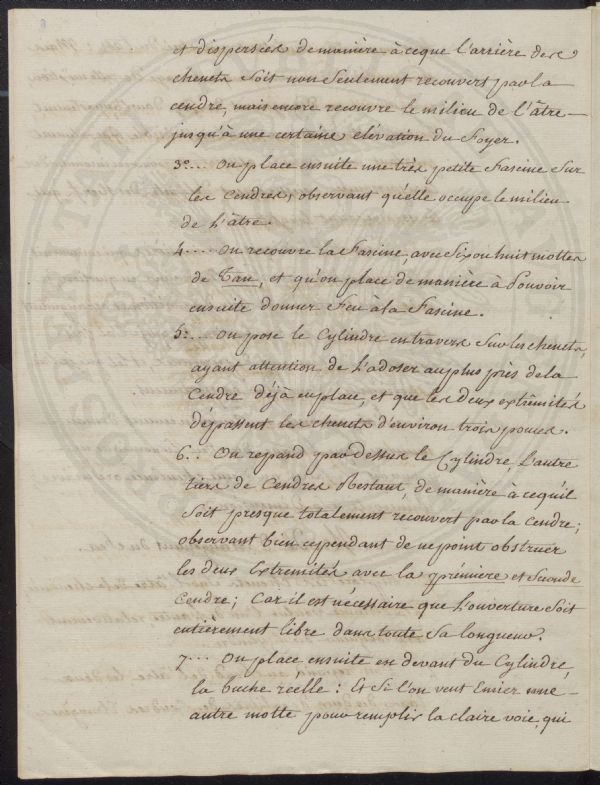 et dispersées de manière à ceque l'arrière des
chenets soit non seulement recouvert par la
cendre, mais encore recouvre le milieu de l'âtre
jusqu'à une certaine élévation du Foyer.
3°... On place ensuite une très petite Fascine sur
les Cendres, observant qu'elle occupe le milieu
de L'âtre.
4... On recouvre la Fascine, avec Six ou huit mottes
de Tan, et qu'on place de manière à Pouvoir
ensuite donner Feu à la Fascine.
5:... On pose le Cylindre en travers sur les chenets,
ayant attention de L'adoser au plus près de la
Cendre déjà en place, et que les deux extrêmités
dépassent les chenets d'environ trois pouces.
6.. On repand par dessus le Cylindre, L'autre
tiers de Cendres Restant, de manière à cequ'il
soit presque totalement recouvert par la Cendre;
observant bien cependant de ne point obstruer
les deux Extremités avec la prémiere et Seconde
Cendre; Car il est nécessaire que L'ouverture Soit
entièrement libre dans toute Sa longueur.
7... On place ensuite en devant du Cylindre,
la buche réelle: Et Si l'on veut Emier une
autre motte pour remplir la claire voie, qui